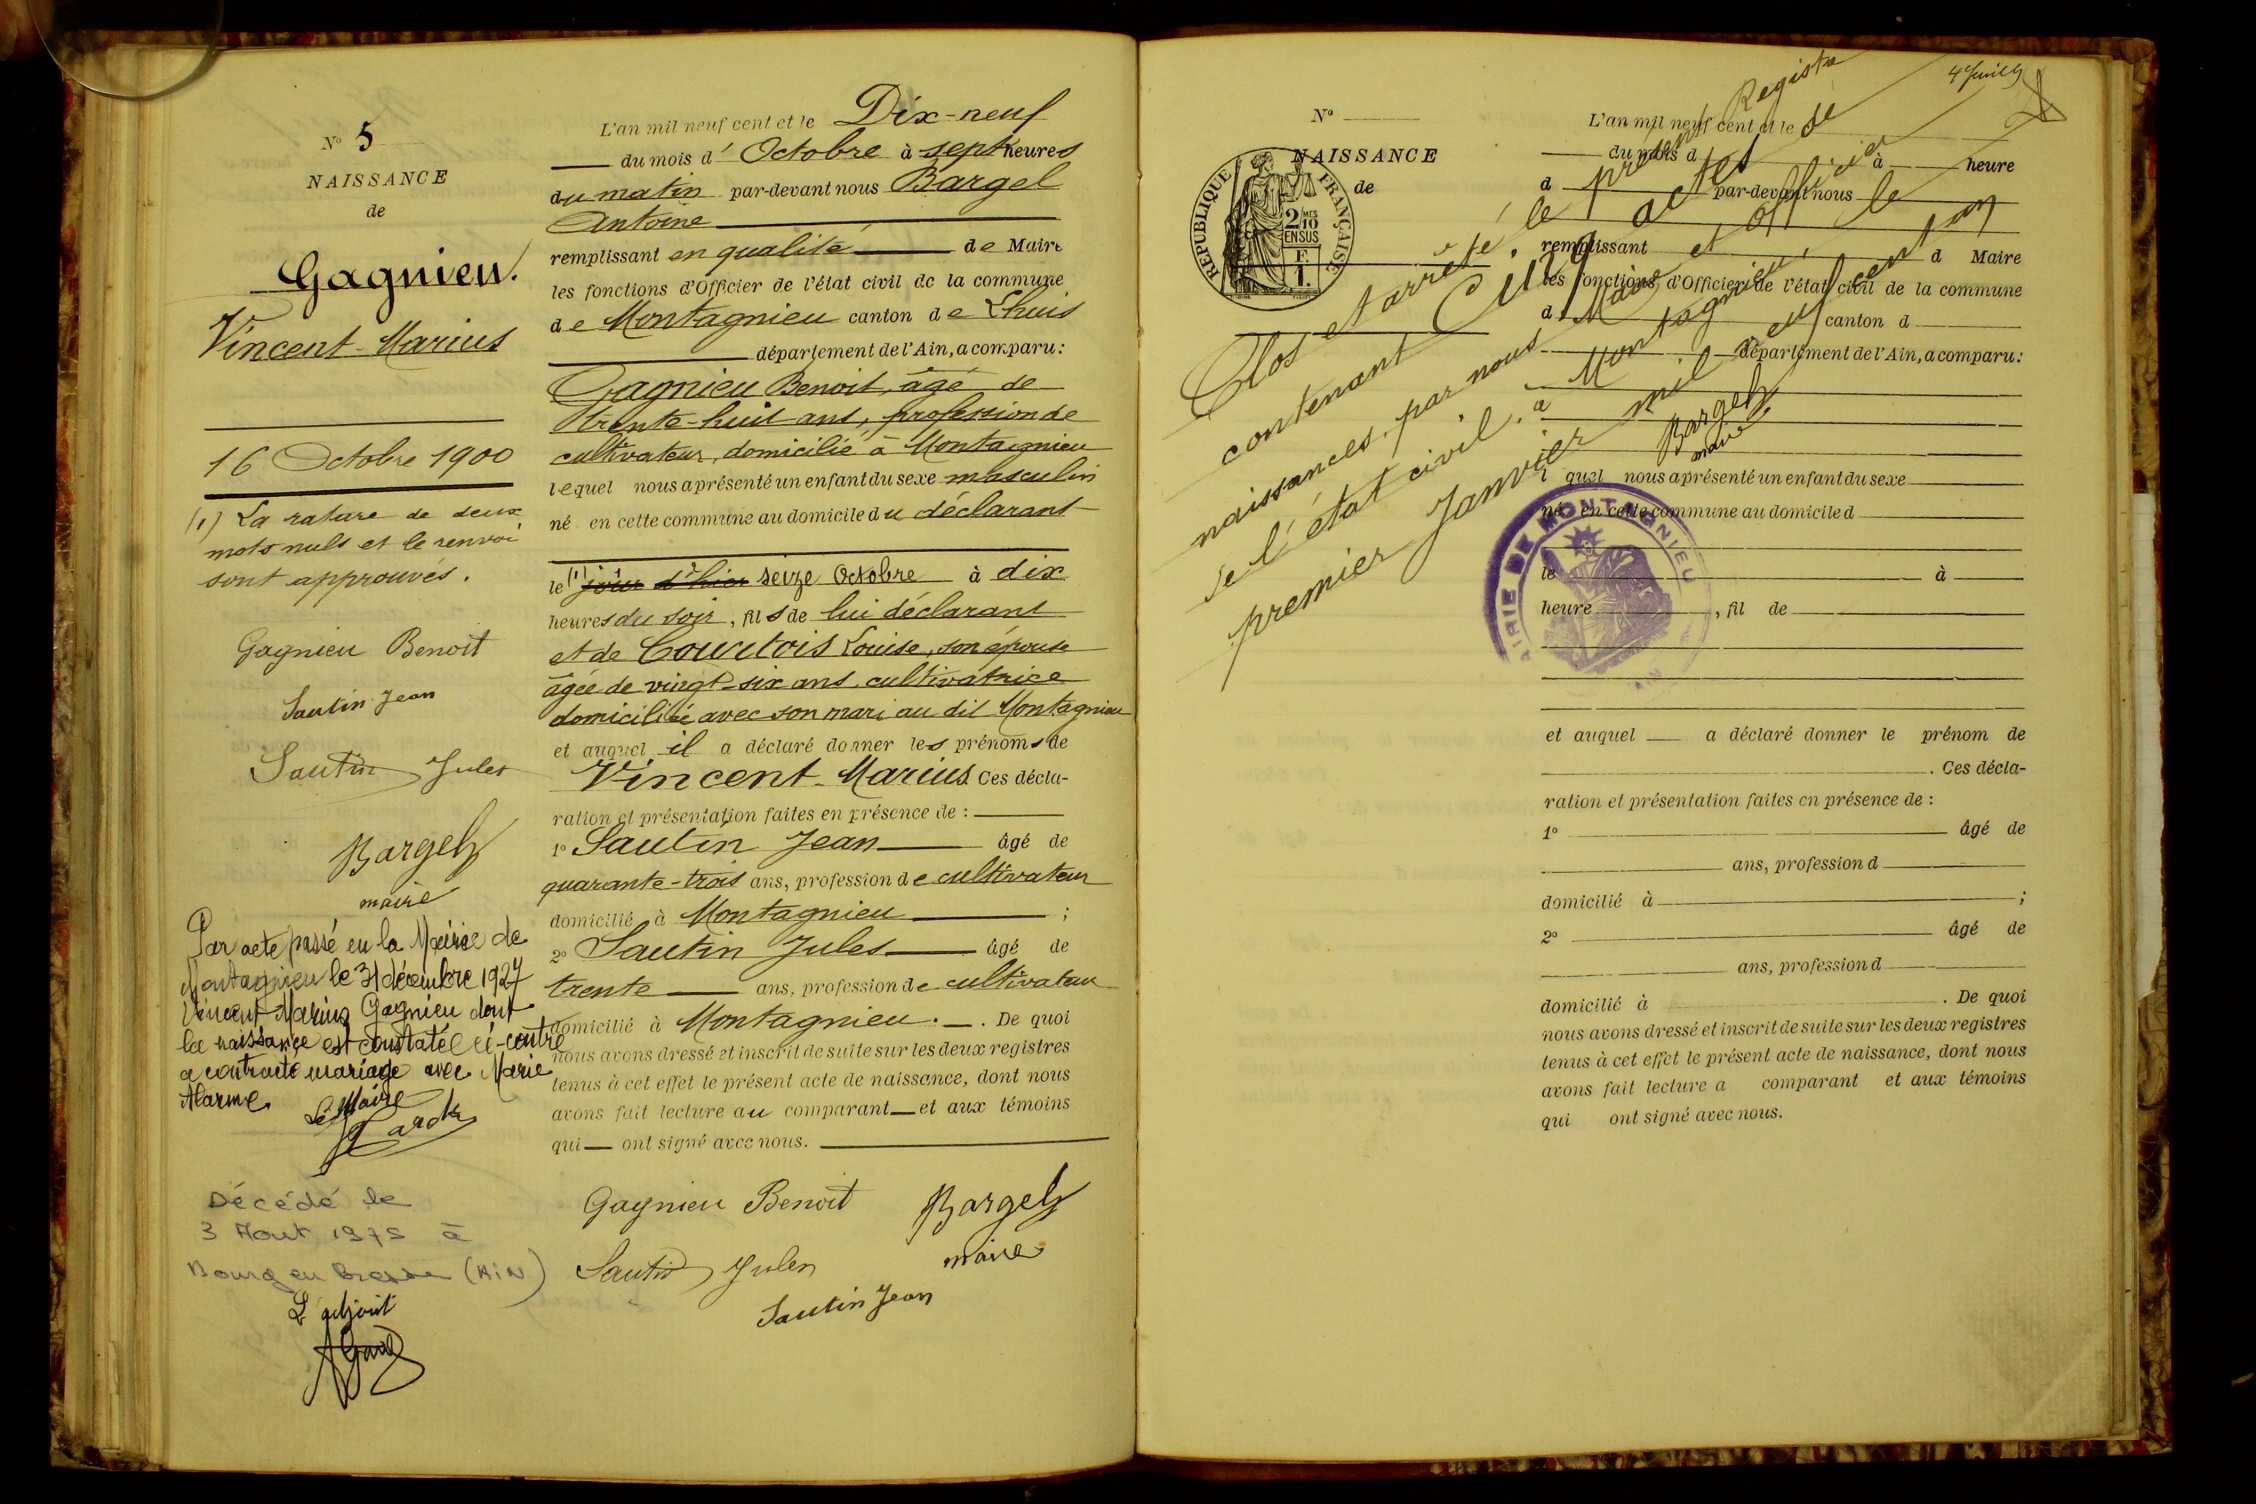 N° 5
NAISSANCE
de
Gagnieu.
Vincent-Marius
16 Octobre 1900
(1) La rature de deux
mots nuls et le renvoi
sont approuvés.
Gagnieu Benoit
Sautin Jean
Sautin Jules
Bargel
maire
Par acte passé en la Mairie de
Montagnieu le 31 décembre 1927
Vincent Marius Gagnieu dont
la naissance est constatée ci-contre
a contracté mariage avec Marie
Le Maire
Décédé le
3 Aout 1975 à
Bourg en Bresse (AiN)
L'adjoint
L'an mil neuf cent et le Dix-neuf
du mois d'Octobre à sept heures
du matin par-devant nous Bargel
Antoine
remplissant en qualité de Maire
les fonctions d'Officier de l'état civil de la commune
de Montagnieu canton de Lhuis
département de l'Ain, a comparu:
Gagnieu Benoit, âgé de
trente-huit ans, profession de
cultivateur, domicilié à Montagnieu
lequel nous a présenté un enfant du sexe masculin
né en cette commune au domicile du déclarant
le (1) jour d'hier seize Octobre à dix
heures du soir, fils de lui déclarant
et de Courtois Louise, son épouse
âgée de vingt-six ans cultivatrice
domiciliée avec son mari au dit Montagnieu
et auquel il a déclaré donner les prénoms de
Vincent-Marius. Ces décla-
ration et présentation faites en présence de :
1° Sautin Jean âgé de
quarante-trois ans, profession de cultivateur
domicilié à Montagnieu ;
2° Sautin Jules âgé de
trente ans, profession de cultivateur
domicilié à Montagnieu. De quoi
nous avons dressé et inscrit de suite sur les deux registres
tenus à cet effet le présent acte de naissance, dont nous
avons fait lecture au comparant et aux témoins
qui ont signé avec nous.
Gagnieu Benoit
Bargel
maire
Sautin Jules
Sautin Jean
N°
NAISSANCE
de
RÉPUBLIQUE FRANÇAISE
2 MES
10
EN SUS
F.
1.
Clos et arrêté le présent Registre
contenant Cinq actes de
naissances, par nous Maire et officier
de l'état civil, à Montagnieu, le
premier Janvier mil neuf cent un
Bargel
maire
MAIRIE DE MONTAGNIEU
L'an mil neuf cent et le
du mois d à heure
d par-devant nous
remplissant d Maire
les fonctions d'Officier de l'état civil de la commune
d canton d
département de l'Ain, a comparu:
l quel nous a présenté un enfant du sexe
né en cette commune au domicile d
le à
heure , fil de
et auquel a déclaré donner le prénom de
. Ces décla-
ration et présentation faites en présence de :
1° âgé de
ans, profession d
domicilié à ;
2° âgé de
ans, profession d
domicilié à . De quoi
nous avons dressé et inscrit de suite sur les deux registres
tenus à cet effet le présent acte de naissance, dont nous
avons fait lecture a comparant et aux témoins
qui ont signé avec nous.